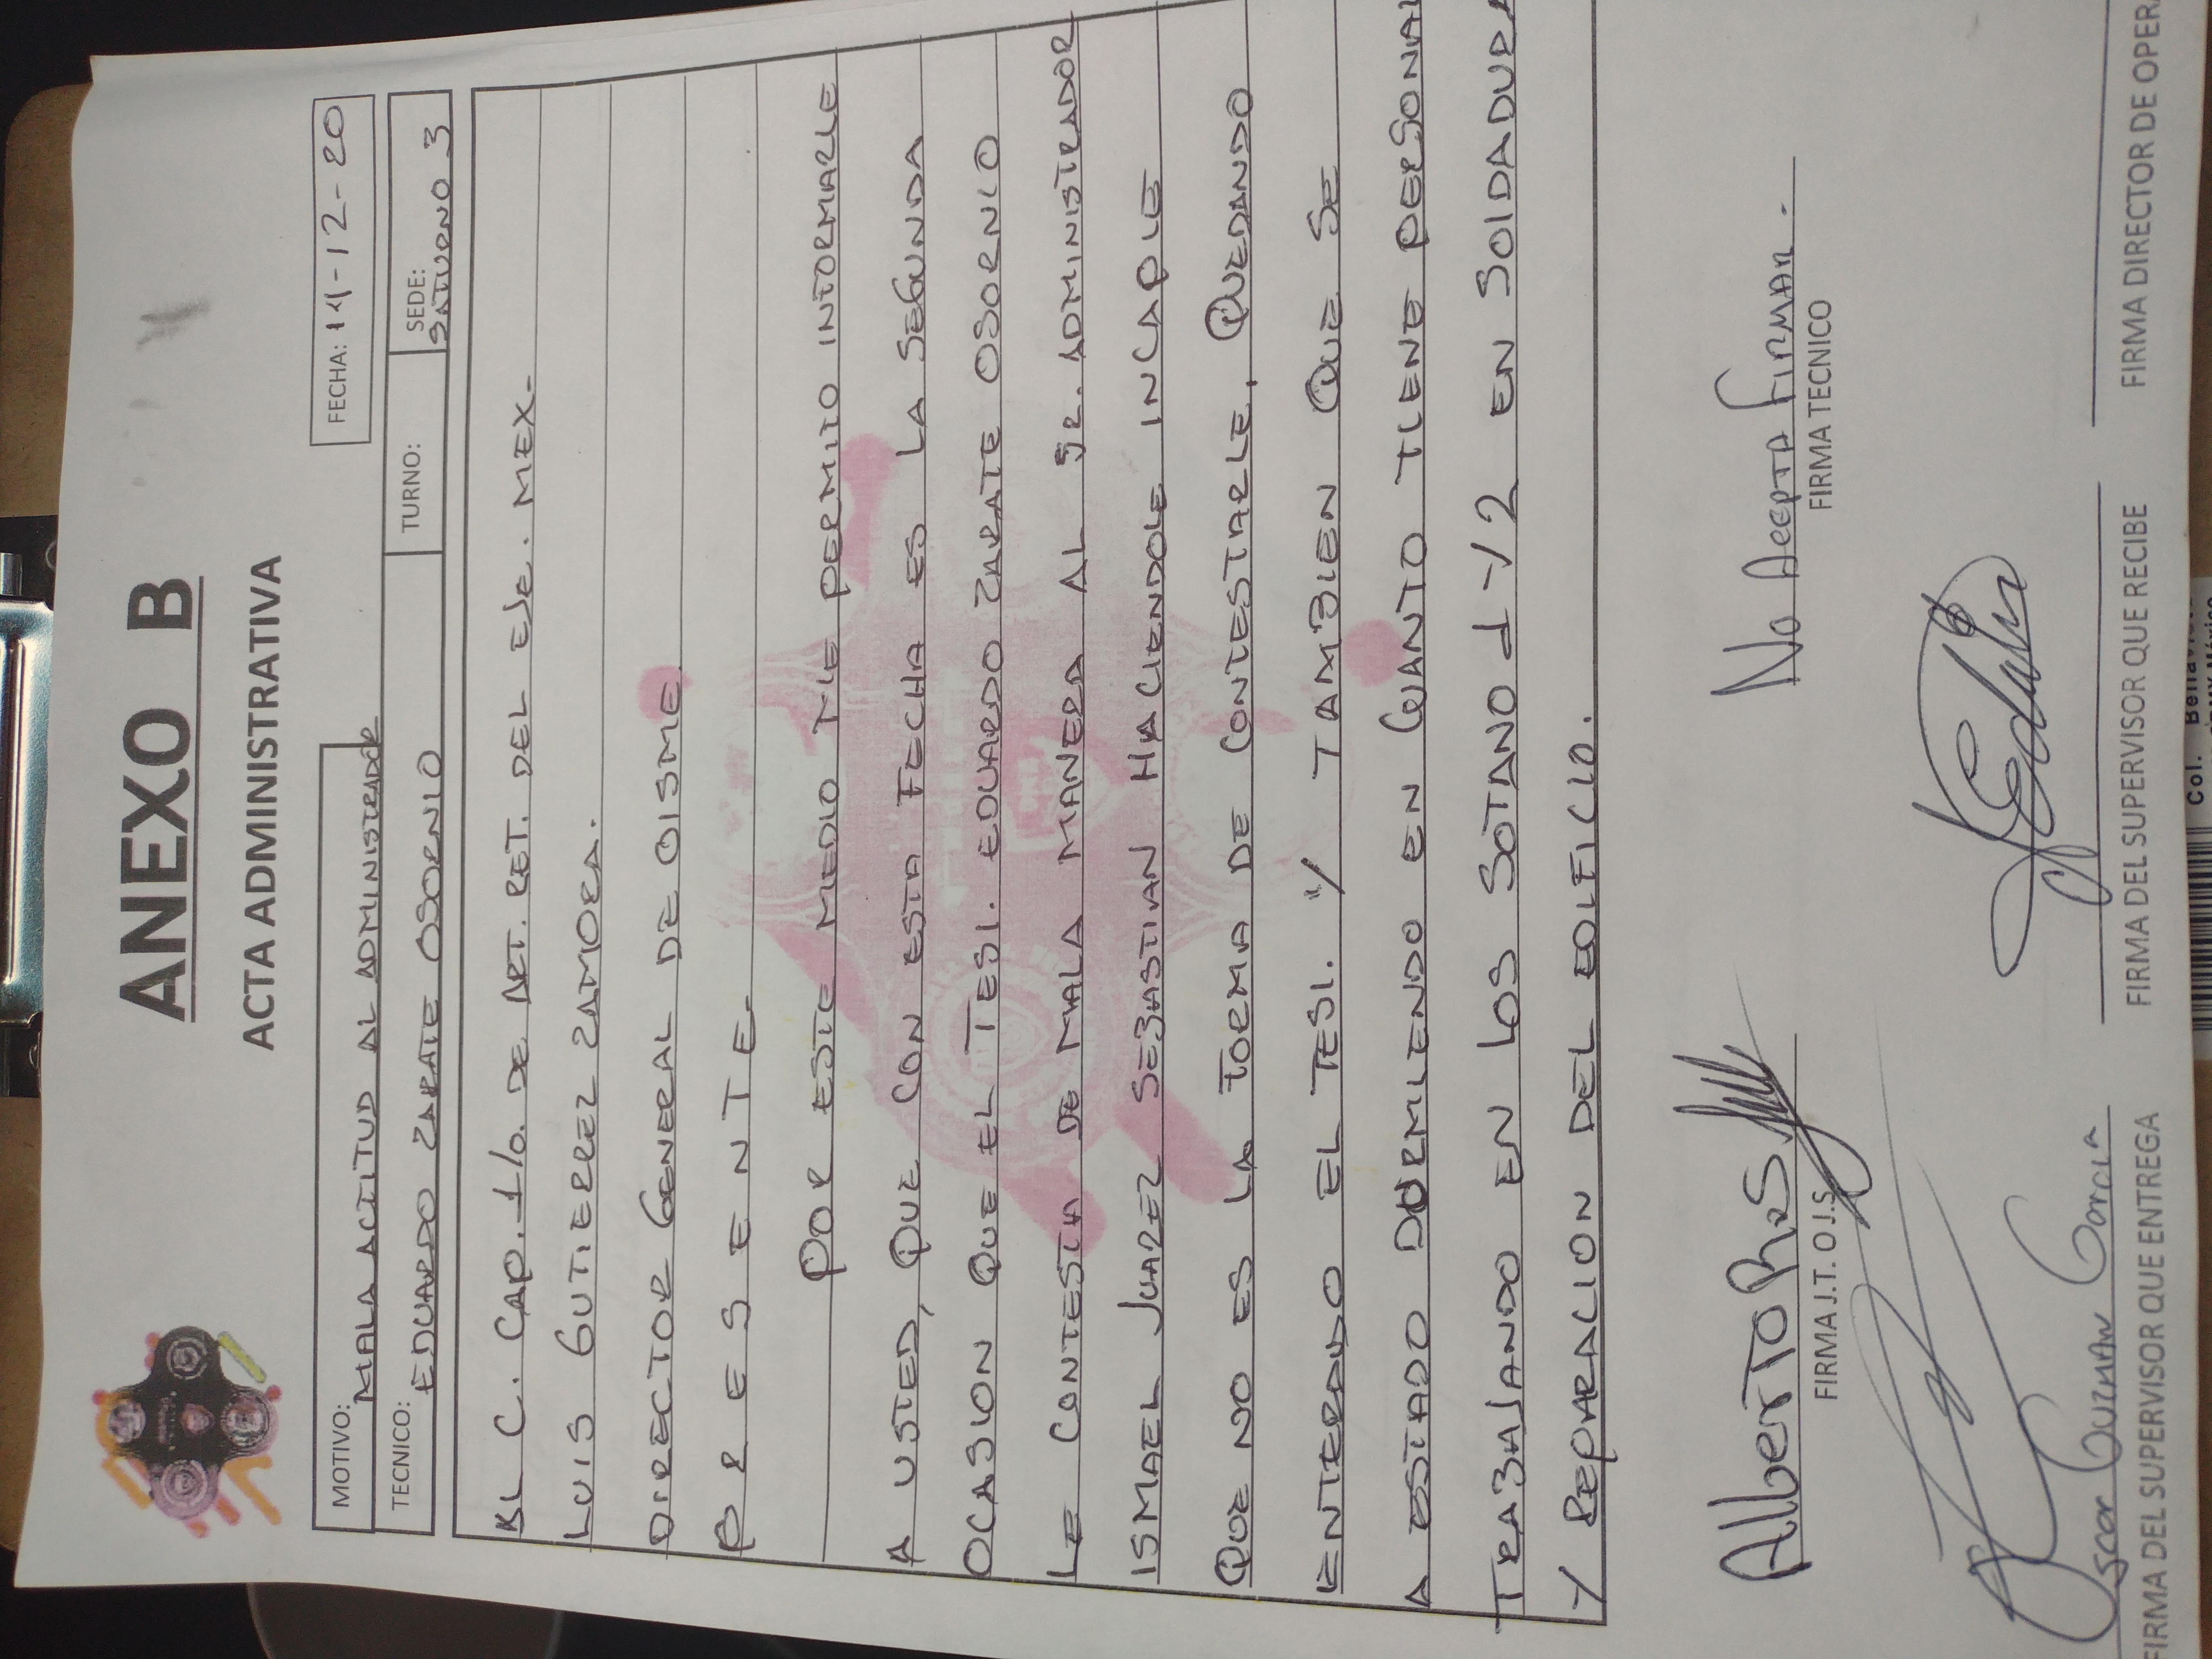 ANEXO B
ACTA ADMINISTRATIVA
MOTIVO: MALA ACTITUD AL ADMINISTRADOR
FECHA: 14-12-20
TECNICO: EDUARDO ZARATE OSORNIO
TURNO:
SEDE: SATURNO 3
AL C. CAP. 1/o. DE ART. RET. DEL EJE. MEX-
LUIS GUTIERREZ ZAMORA.
DIRECTOR GENERAL DE OISME.
P R E S E N T E-
POR ESTE MEDIO ME PERMITO INFORMARLE
A USTED, QUE CON ESTA FECHA ES LA SEGUNDA
OCASION QUE EL TESI. EDUARDO ZARATE OSORNIO
LE CONTESTA DE MALA MANERA AL SR. ADMINISTRADOR
ISMAEL JUAREZ SEBASTIAN HACIENDOLE INCAPIE
QUE NO ES LA FORMA DE CONTESTARLE, QUEDANDO
ENTERADO EL TESI. Y TAMBIEN QUE SE
A ESTADO DURMIENDO EN CUANTO TIENE PERSONAL
TRABAJANDO EN LOS SOTANO 1 Y 2 EN SOLDADURA
Y REPARACION DEL EDIFICIO.
Alberto
FIRMA J.T. O J.S.
No Acepta Firmar -
FIRMA TECNICO
Oscar Guzman Garcia
FIRMA DEL SUPERVISOR QUE ENTREGA
FIRMA DEL SUPERVISOR QUE RECIBE
FIRMA DIRECTOR DE OPERA
Col. Bellavis